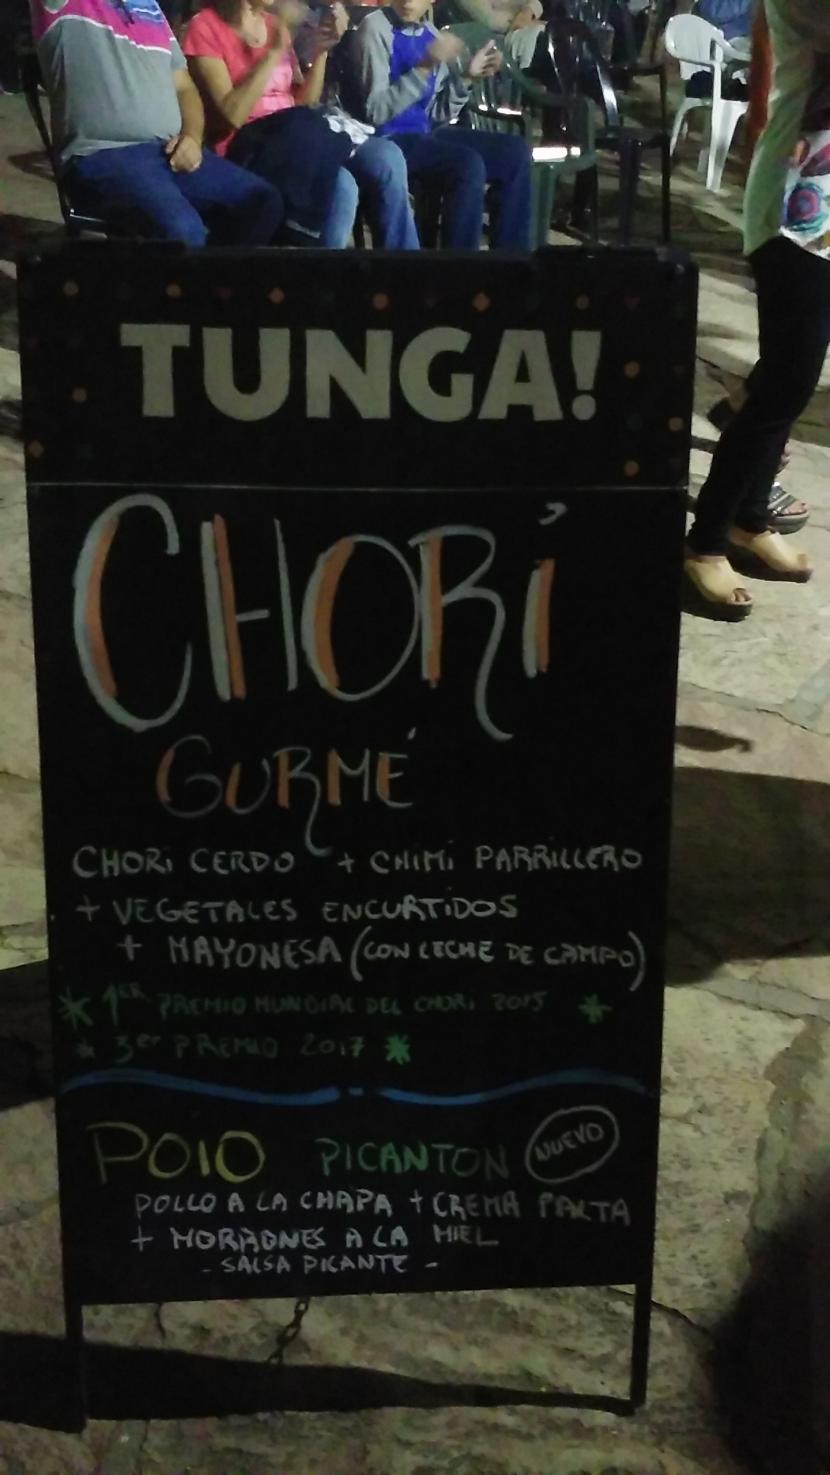 TUNGA!
CHORI
GURMÉ
CHORI CERDO + CHIMI PARRILLERO
+ VEGETALES ENCURTIDOS
+ MAYONESA (CON LECHE DE CAMPO)
* 1ER PREMIO MUNDIAL DEL CHORI 2015 *
* 3er PREMIO 2017 *
POIO PICANTON NUEVO
POLLO A LA CHAPA + CREMA PALTA
+ MORRONES A LA MIEL
- SALSA PICANTE -